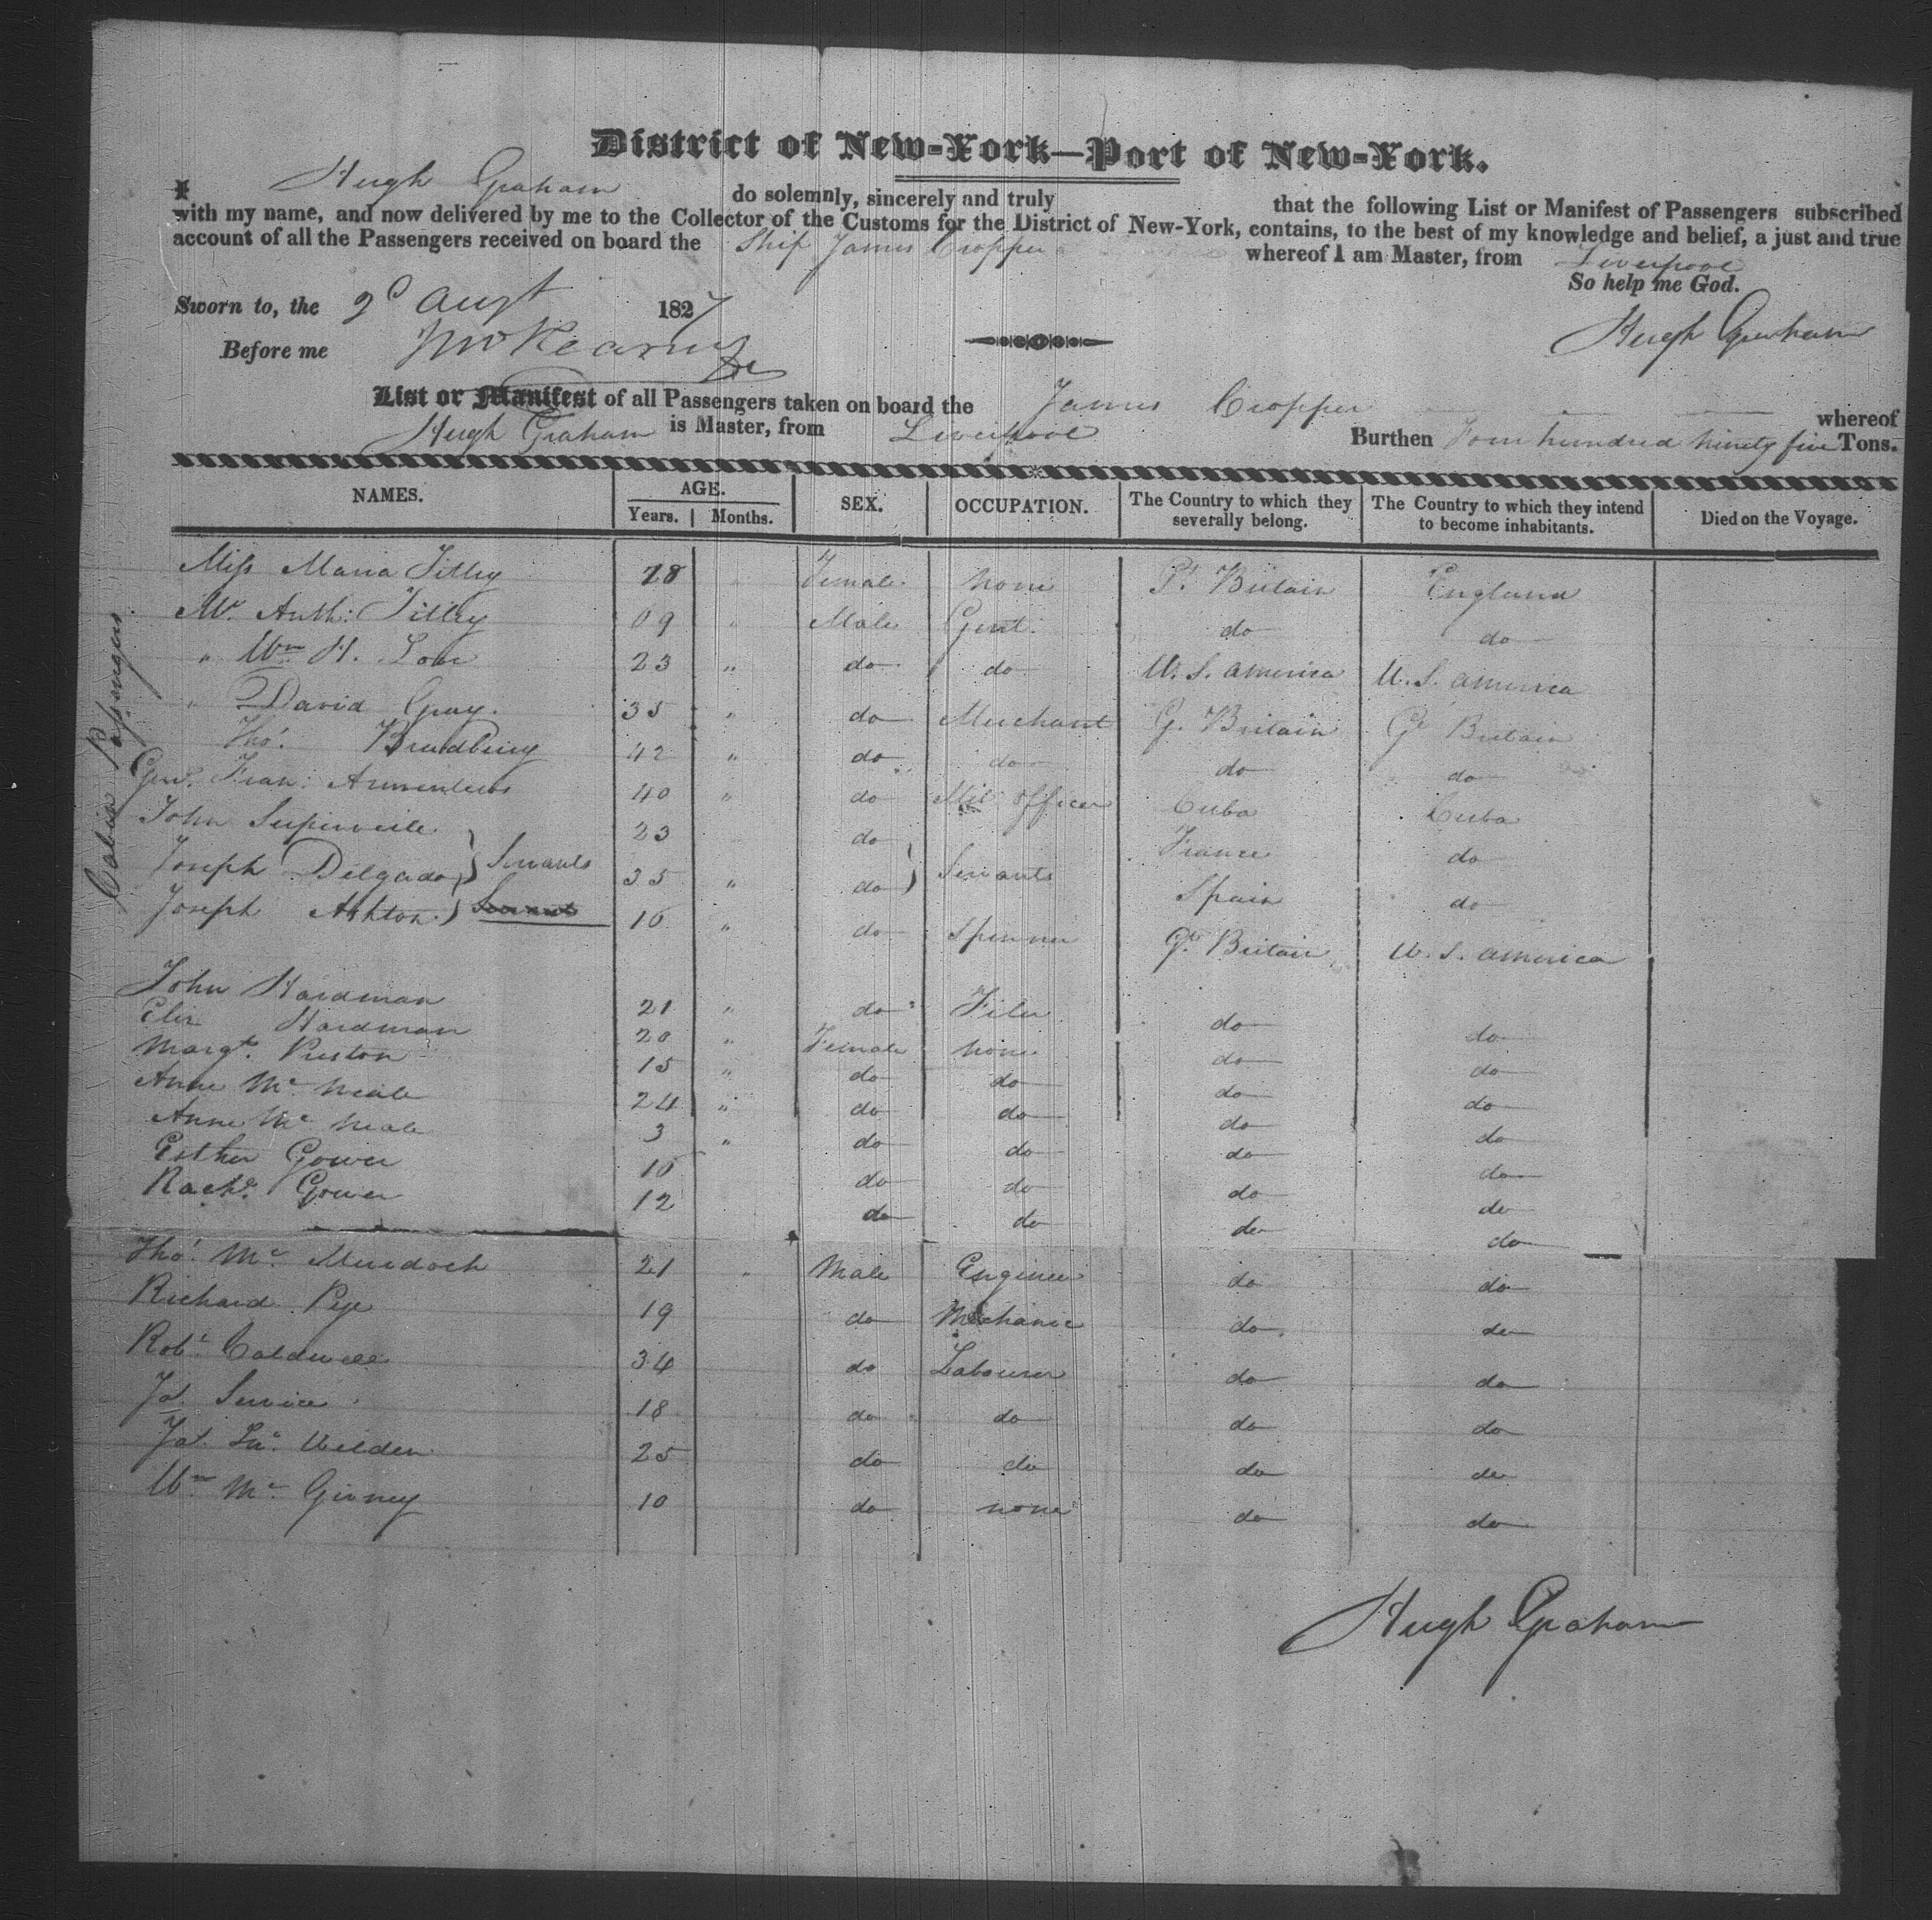 District of New-York—Port of New-York.
I Hugh Graham do solemnly, sincerely and truly that the following List or Manifest of Passengers subscribed
with my name, and now delivered by me to the Collector of the Customs for the District of New-York, contains, to the best of my knowledge and belief, a just and true
account of all the Passengers received on board the Ship James Cropper whereof I am Master, from Liverpool
So help me God.
Sworn to, the 2d Augt 1827
Hugh Graham
Before me
List or Manifest of all Passengers taken on board the James Cropper whereof
Hugh Graham is Master, from Liverpool Burthen Four hundred ninety five Tons.
NAMES. AGE. SEX. OCCUPATION. The Country to which they severally belong. The Country to which they intend to become inhabitants. Died on the Voyage.
Years. Months.
Cabin Passengers
Miss Maria Tilley 28 " Female none Gt. Britain England
Mr. Anth: Tilley 09 " Male Gent. do do
" Wm H. 23 " do do U. S. America U. S. America
" David Gray. 35 " do Merchant G. Britain Gt Britain
Thos. Bradbury 42 " do do do do
Genl. Fran: 40 " do Mil officer Cuba Cuba
John 23 do France do
Joseph Delgado } Servants 35 " do } Servants Spain do
Joseph Ashton } 16 " do Spinner Gt. Britain U. S. America
John Hardman 21 " do Filer do do
Eliz Hardman 20 " Female none do do
Margt. Preston 15 " do do do do
Anne Mc Neale 24 " do do do do
Anne Mc Neale 3 " do do do do
Esther Gower 16 do do do do
Rachl. Gower 12 do do do do
Thos. Mc Murdoch 21 " Male Engineer do do
Richard Pye 19 do Mechanic do do
Robt. Caldwell 34 do Labourer do do
Jas. Service 18 do do do do
Jas. 25 do do do do
Wm Mc Givney 10 do none do do
Hugh Graham